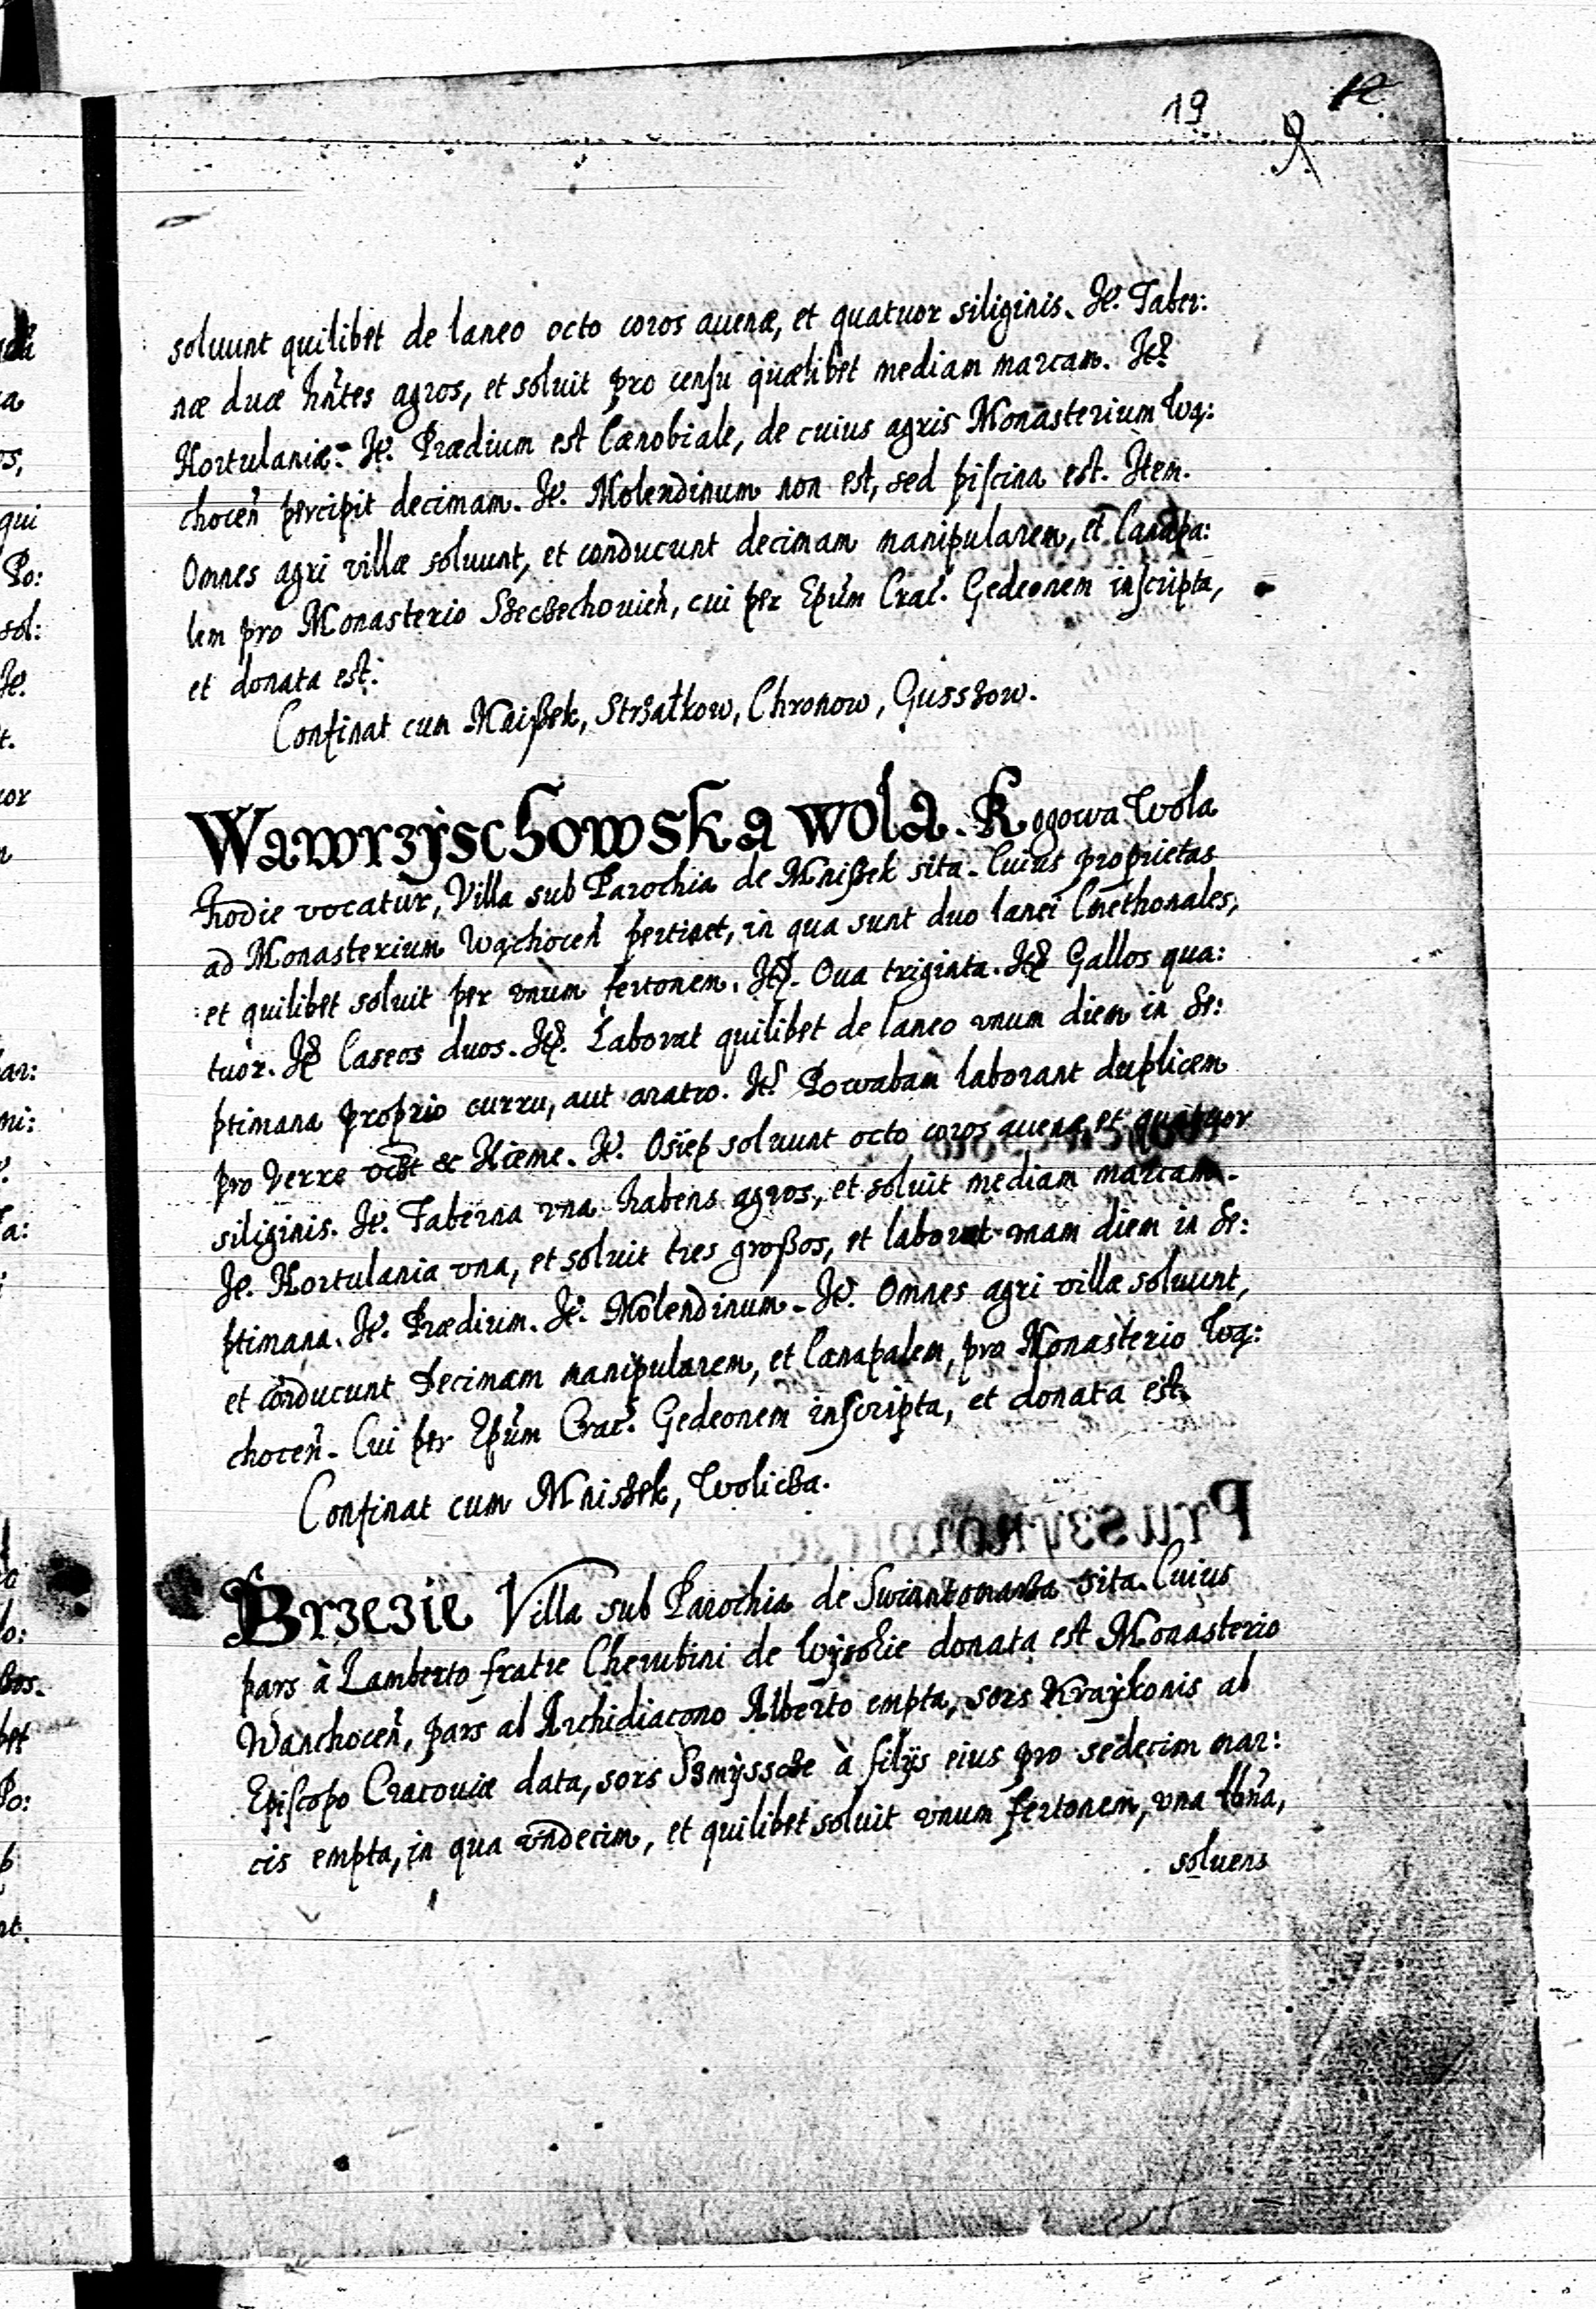 19 12
9
soluunt quilibet de laneo octo coros auenæ, et quatuor siliginis. It. Taber:
næ duæ hñtes agros, et soluit pro censu quælibet mediam marcam. Itẽ
Hortulaniæ. It. Prædium est Cænobiale, de cuius agris Monasterium Wą:
choceñ percipit decimam. It. Molendinum non est, sed piscina est. Item.
Omnes agri villæ soluunt, et conducunt decimam manipularem, et Canapa:
lem pro Monasterio Szeczechouieñ, cui per Epũm Crac. Gedeonem inscripta,
et donata est.
Confinat cum Mnißek, Strzałkow, Chronow, Gusszow.
Wawrzÿschowska wola. Rogowa Wola
hodie vocatur, Villa sub Parochia de Mnißek sita. Cuius proprietas
ad Monasterium Wąchoceñ pertinet, in qua sunt duo lanei Cmethonales,
et quilibet soluit per vnum fertonem. Itẽ. Oua triginta. Itẽ Gallos qua:
tuor. Itẽ Caseos duos. Itẽ. Laborat quilibet de laneo vnum diem in Se:
ptimana proprio curru, aut aratro. Itẽ Powabam laborant duplicem
pro Verre et Hieme. It. Osiep soluunt octo coros auenæ et quatuor
siliginis. It. Taberna vna habens agros, et soluit mediam marcam.
It. Hortulania vna, et soluit tres großos, et laborat vnam diem in Se:
ptimana. It. Prædium. It. Molendinum. It. Omnes agri villæ soluunt,
et conducunt Decimam manipularem, et Canapalem, pro Monasterio Wą:
choceñ. Cui per Epũm Crac. Gedeonem inscripta, et donata est.
Confinat cum Mniszek, Wolicza.
Brzezie Villa sub Parochia de Swiantomarza sita. Cuius
pars à Lamberto fratre Cherubini de Wÿsokie donata est Monasterio
Wanchoceñ, pars ab Archidiacono Alberto empta, sors Kraÿkonis ab
Episcopo Cracouiæ data, sors à filÿs eius pro sedecim mar:
cis empta, in qua vndecim, et quilibet soluit vnum fertonem, vna tbña,
soluens